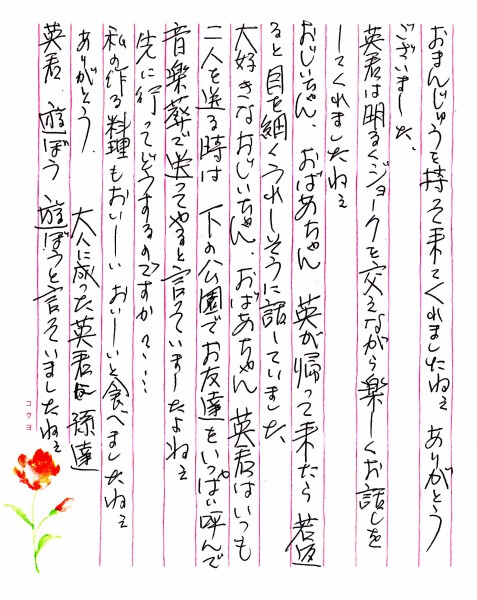 おまんじゅうを持って来てくれましたねェ ありがとう
ございました、
英君は明るくジョークを交えながら楽しくお話しを
してくれましたねェ
おじいちゃん、おばあちゃん 英が帰って来たら 若返
ると目を細くうれしそうに話していました、
大好きなおじいちゃん、おばあちゃん 英君はいつも
二人を送る時は 下の公園でお友達をいっぱい呼んで
音楽葬で送ってやると言っていましたよねェ
先に行ってどうするのですか?、、、、
私の作る料理もおいしい おいしいと食べましたねェ
ありがとう、 大人に成った英君 孫達
英君 遊ぼう 遊ぼうと言っていましたねェ
コクヨ